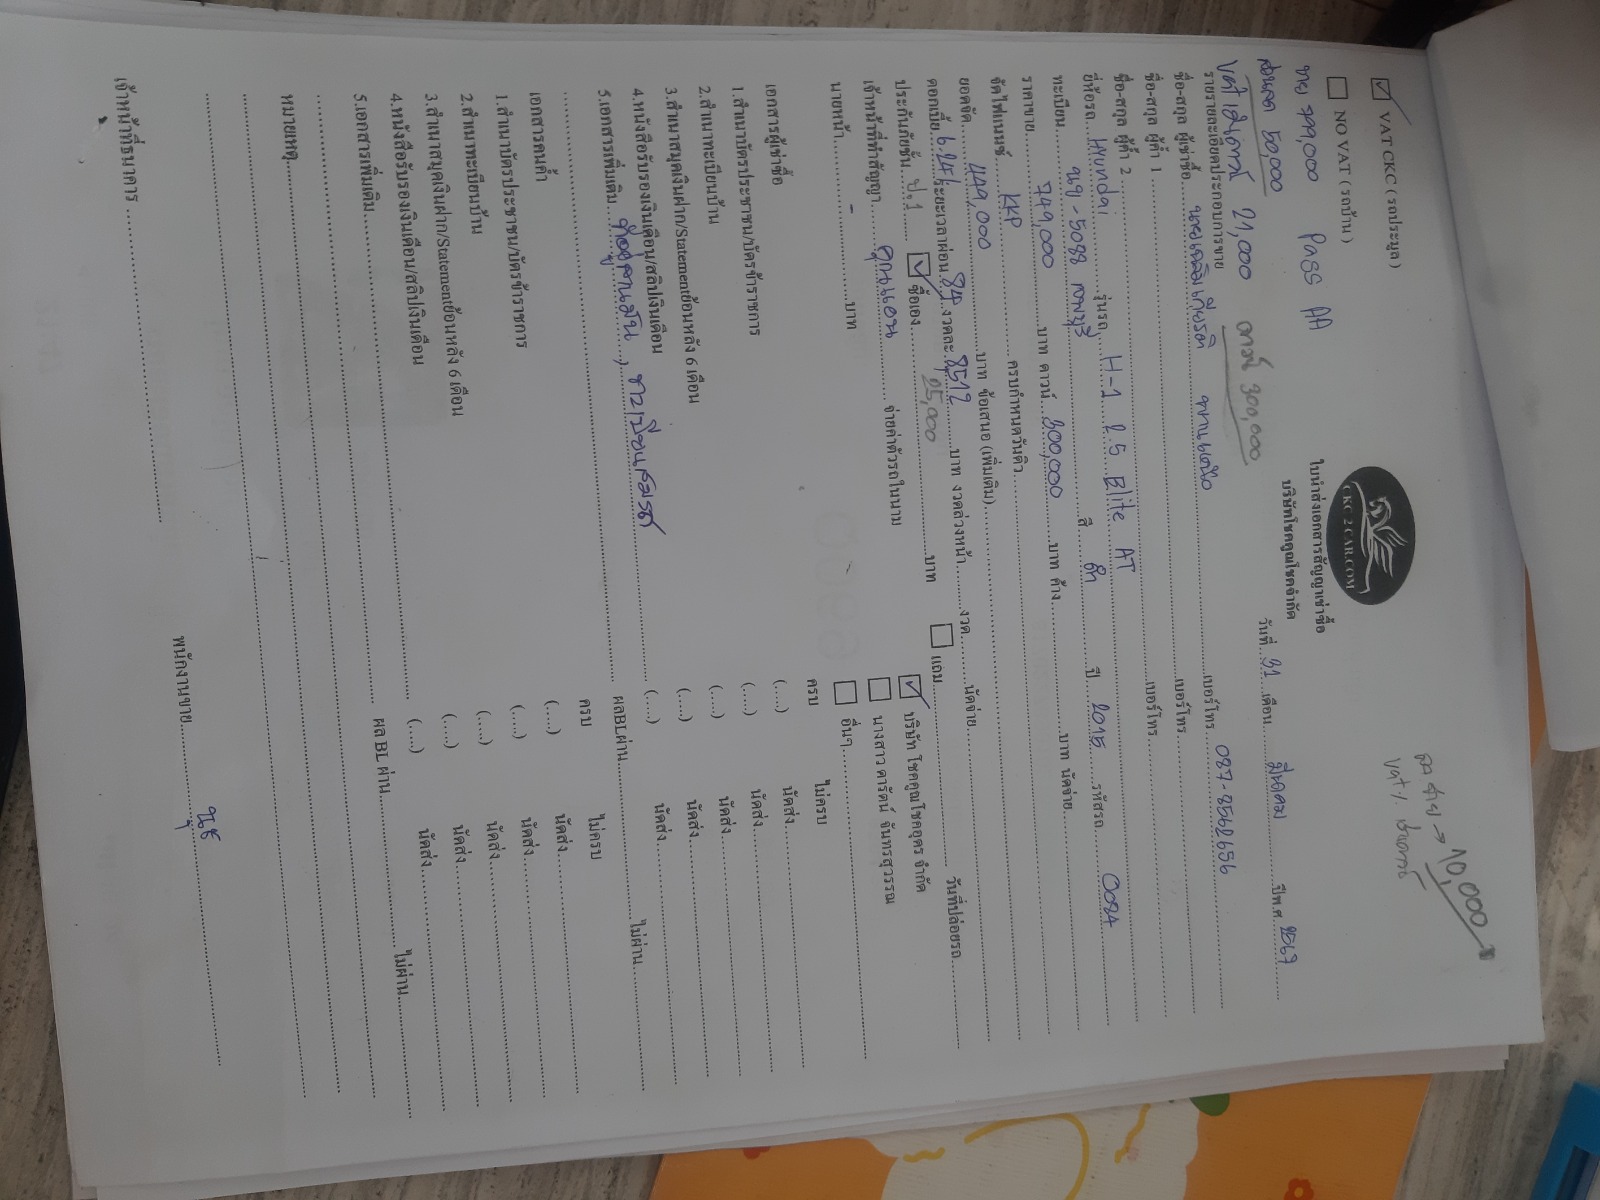 CKC 2 CAR.COM
ใบนำส่งเอกสารสัญญาเช่าซื้อ
บริษัทโชคคูณโชคจำกัด
☑ VAT CKC ( รถประมูล )
☐ NO VAT ( รถบ้าน )
ขาย 799,000 PASS AA
ส่วนลด 50,000
vat 21,000 ดาวน์ 300,000
10,000
วันที่ 31 เดือน มีนาคม ปีพ.ศ. 2567
รายรายละเอียดประกอบการขาย
ชื่อ-สกุล ผู้เช่าซื้อ เบอร์โทร 087-8542656
ชื่อ-สกุล ผู้ค้ำ 1 เบอร์โทร
ชื่อ-สกุล ผู้ค้ำ 2 เบอร์โทร
ยี่ห้อรถ Hyundai รุ่นรถ H-1 2.5 Elite AT ปี 2015 รหัสรถ 0084
ทะเบียน 5088 กาญบุรี สี ดำ
ราคาขาย 749,000 บาท ดาวน์ 300,000 บาท ค้าง บาท นัดจ่าย
จัดไฟแนนซ์ KKP ครบกำหนดวันคิว
ยอดจัด 449,000 บาท ข้อเสนอ (เพิ่มเติม)
ดอกเบี้ย 6.25% ระยะเวลาผ่อน 84 งวดละ 8512 บาท งวดล่วงหน้า งวด นัดจ่าย
ประกันภัยชั้น ป.1 ☑ ซื้อเอง 25,000 บาท ☐ แถม วันที่ปล่อยรถ
เจ้าหน้าที่ทำสัญญา จ่ายค่าตัวรถในนาม ☑ บริษัท โชคคูณโชคอุดร จำกัด
นายหน้า - บาท ☐ นางสาว ดารัตน์ จันทรสุวรรณ
☐ อื่นๆ
เอกสารผู้เช่าซื้อ ครบ ไม่ครบ
1.สำเนาบัตรประชาชน/บัตรข้าราชการ (....) นัดส่ง
2.สำเนาทะเบียนบ้าน (....) นัดส่ง
3.สำเนาสมุดเงินฝาก/Statementย้อนหลัง 6 เดือน (....) นัดส่ง
4.หนังสือรับรองเงินเดือน/สลิปเงินเดือน (....) นัดส่ง
5.เอกสารเพิ่มเติม ทะเบียนสมรส (....) นัดส่ง
ผลBLผ่าน ไม่ผ่าน
เอกสารคนค้ำ ครบ ไม่ครบ
1.สำเนาบัตรประชาชน/บัตรข้าราชการ (....) นัดส่ง
2.สำเนาทะเบียนบ้าน (....) นัดส่ง
3.สำเนาสมุดเงินฝาก/Statementย้อนหลัง 6 เดือน (....) นัดส่ง
4.หนังสือรับรองเงินเดือน/สลิปเงินเดือน (....) นัดส่ง
5.เอกสารเพิ่มเติม (....) นัดส่ง
ผล BL ผ่าน ไม่ผ่าน
หมายเหตุ
เจ้าหน้าที่ธนาคาร พนักงานขาย